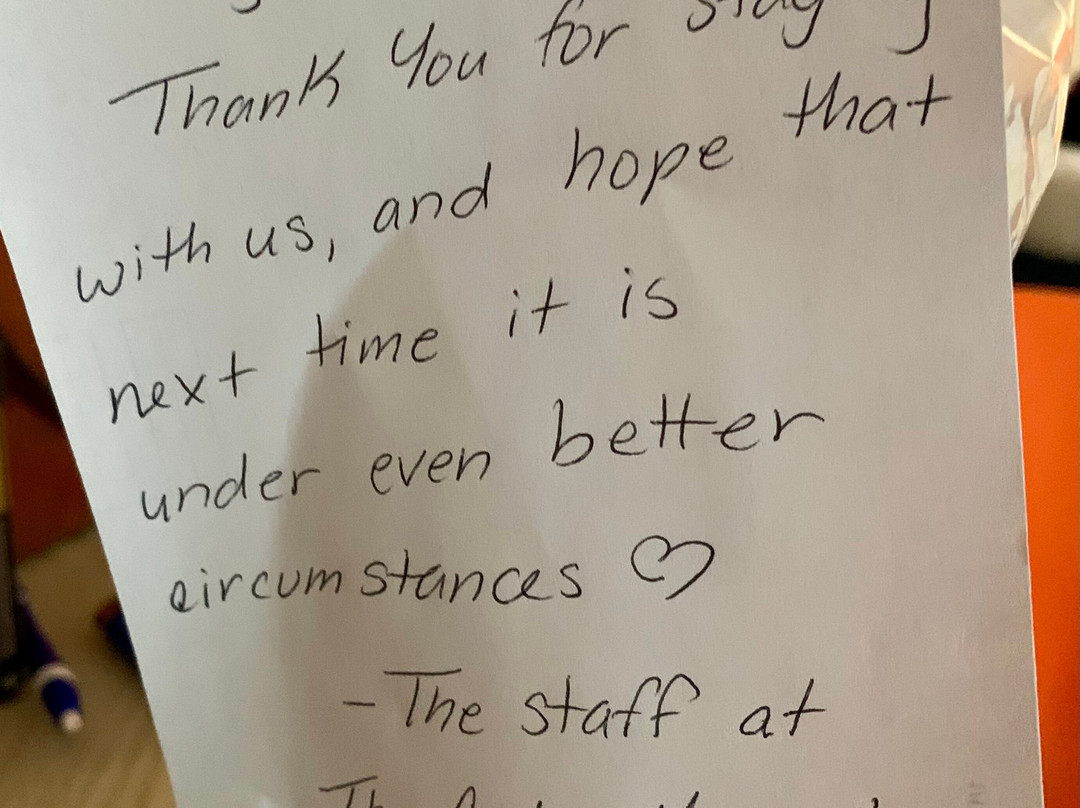 Thank You for
with us, and hope that
next time it is
under even better
circumstances ♡
-The staff at